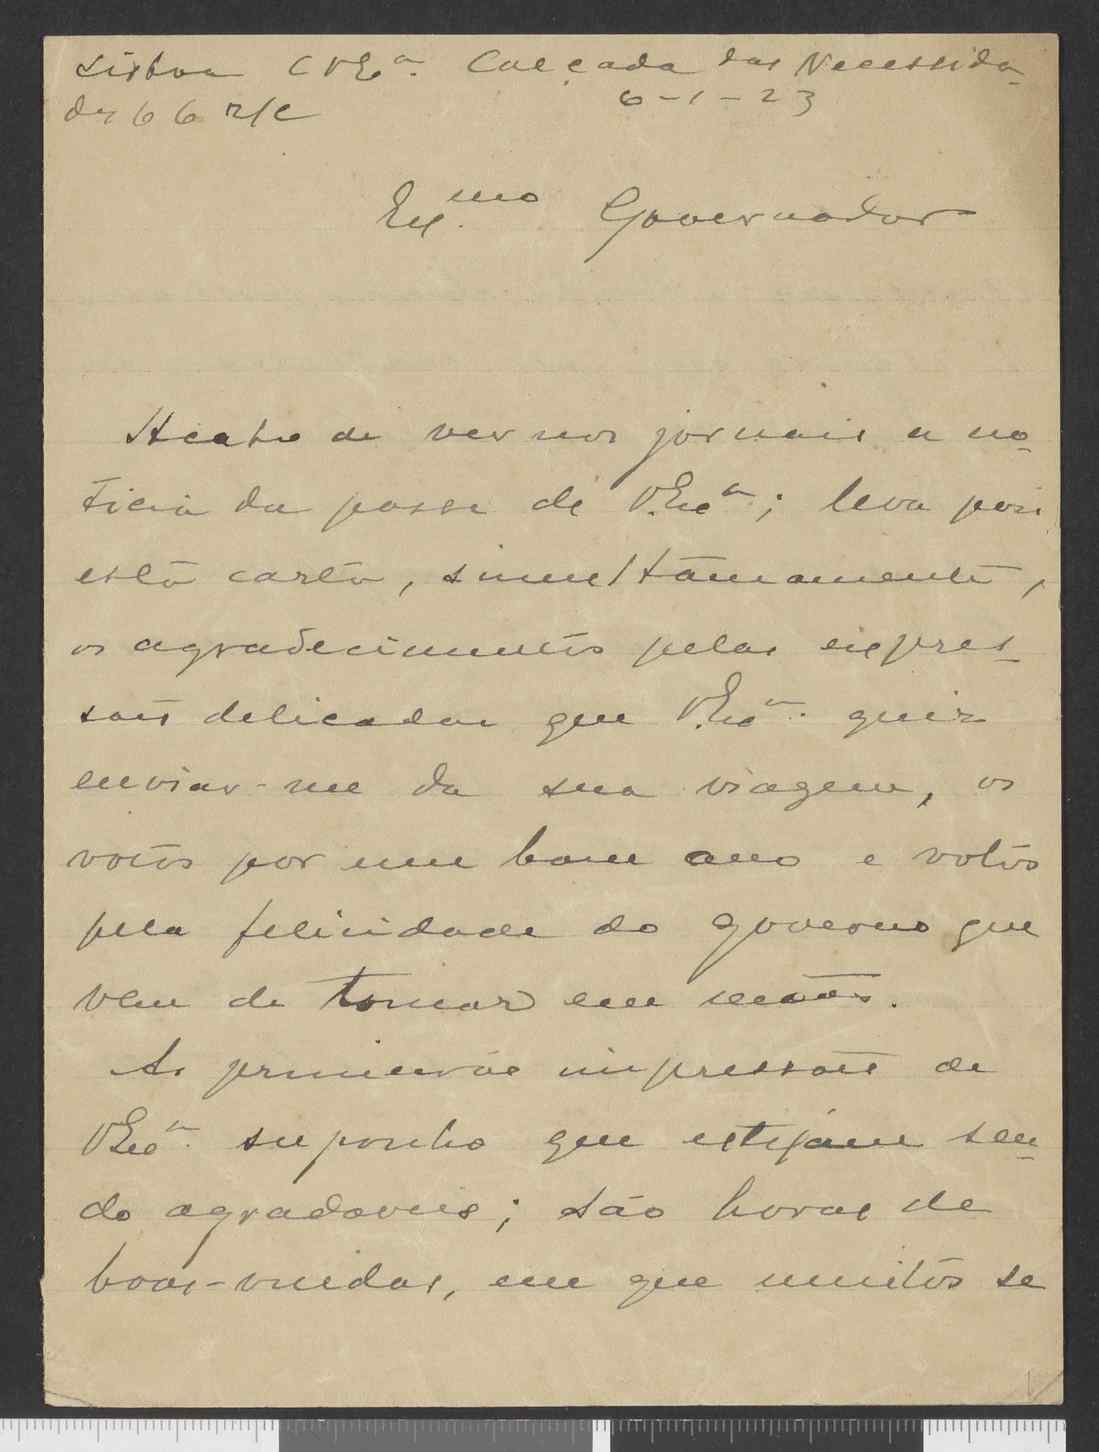 Lisboa C V Exª. Calçada das Necessida-
des 66 r/c 6-1-23
Exmo. Governador
Acabo de ver nos jornais a no-
ticia da posse de V.Exª; leva pois
esta carta, simultâneamente,
os agradecimentos pelas expres-
sões delicadas que V.Exª. quiz
enviar-me da sua viagem, os
votos por um bom ano e votos
pela felicidade do governo que
vem de tomar em mãos.
As primeiras impressões de
VExª. suponho que estejam sen-
do agradaveis; são horas de
boas-vindas, em que muitos se